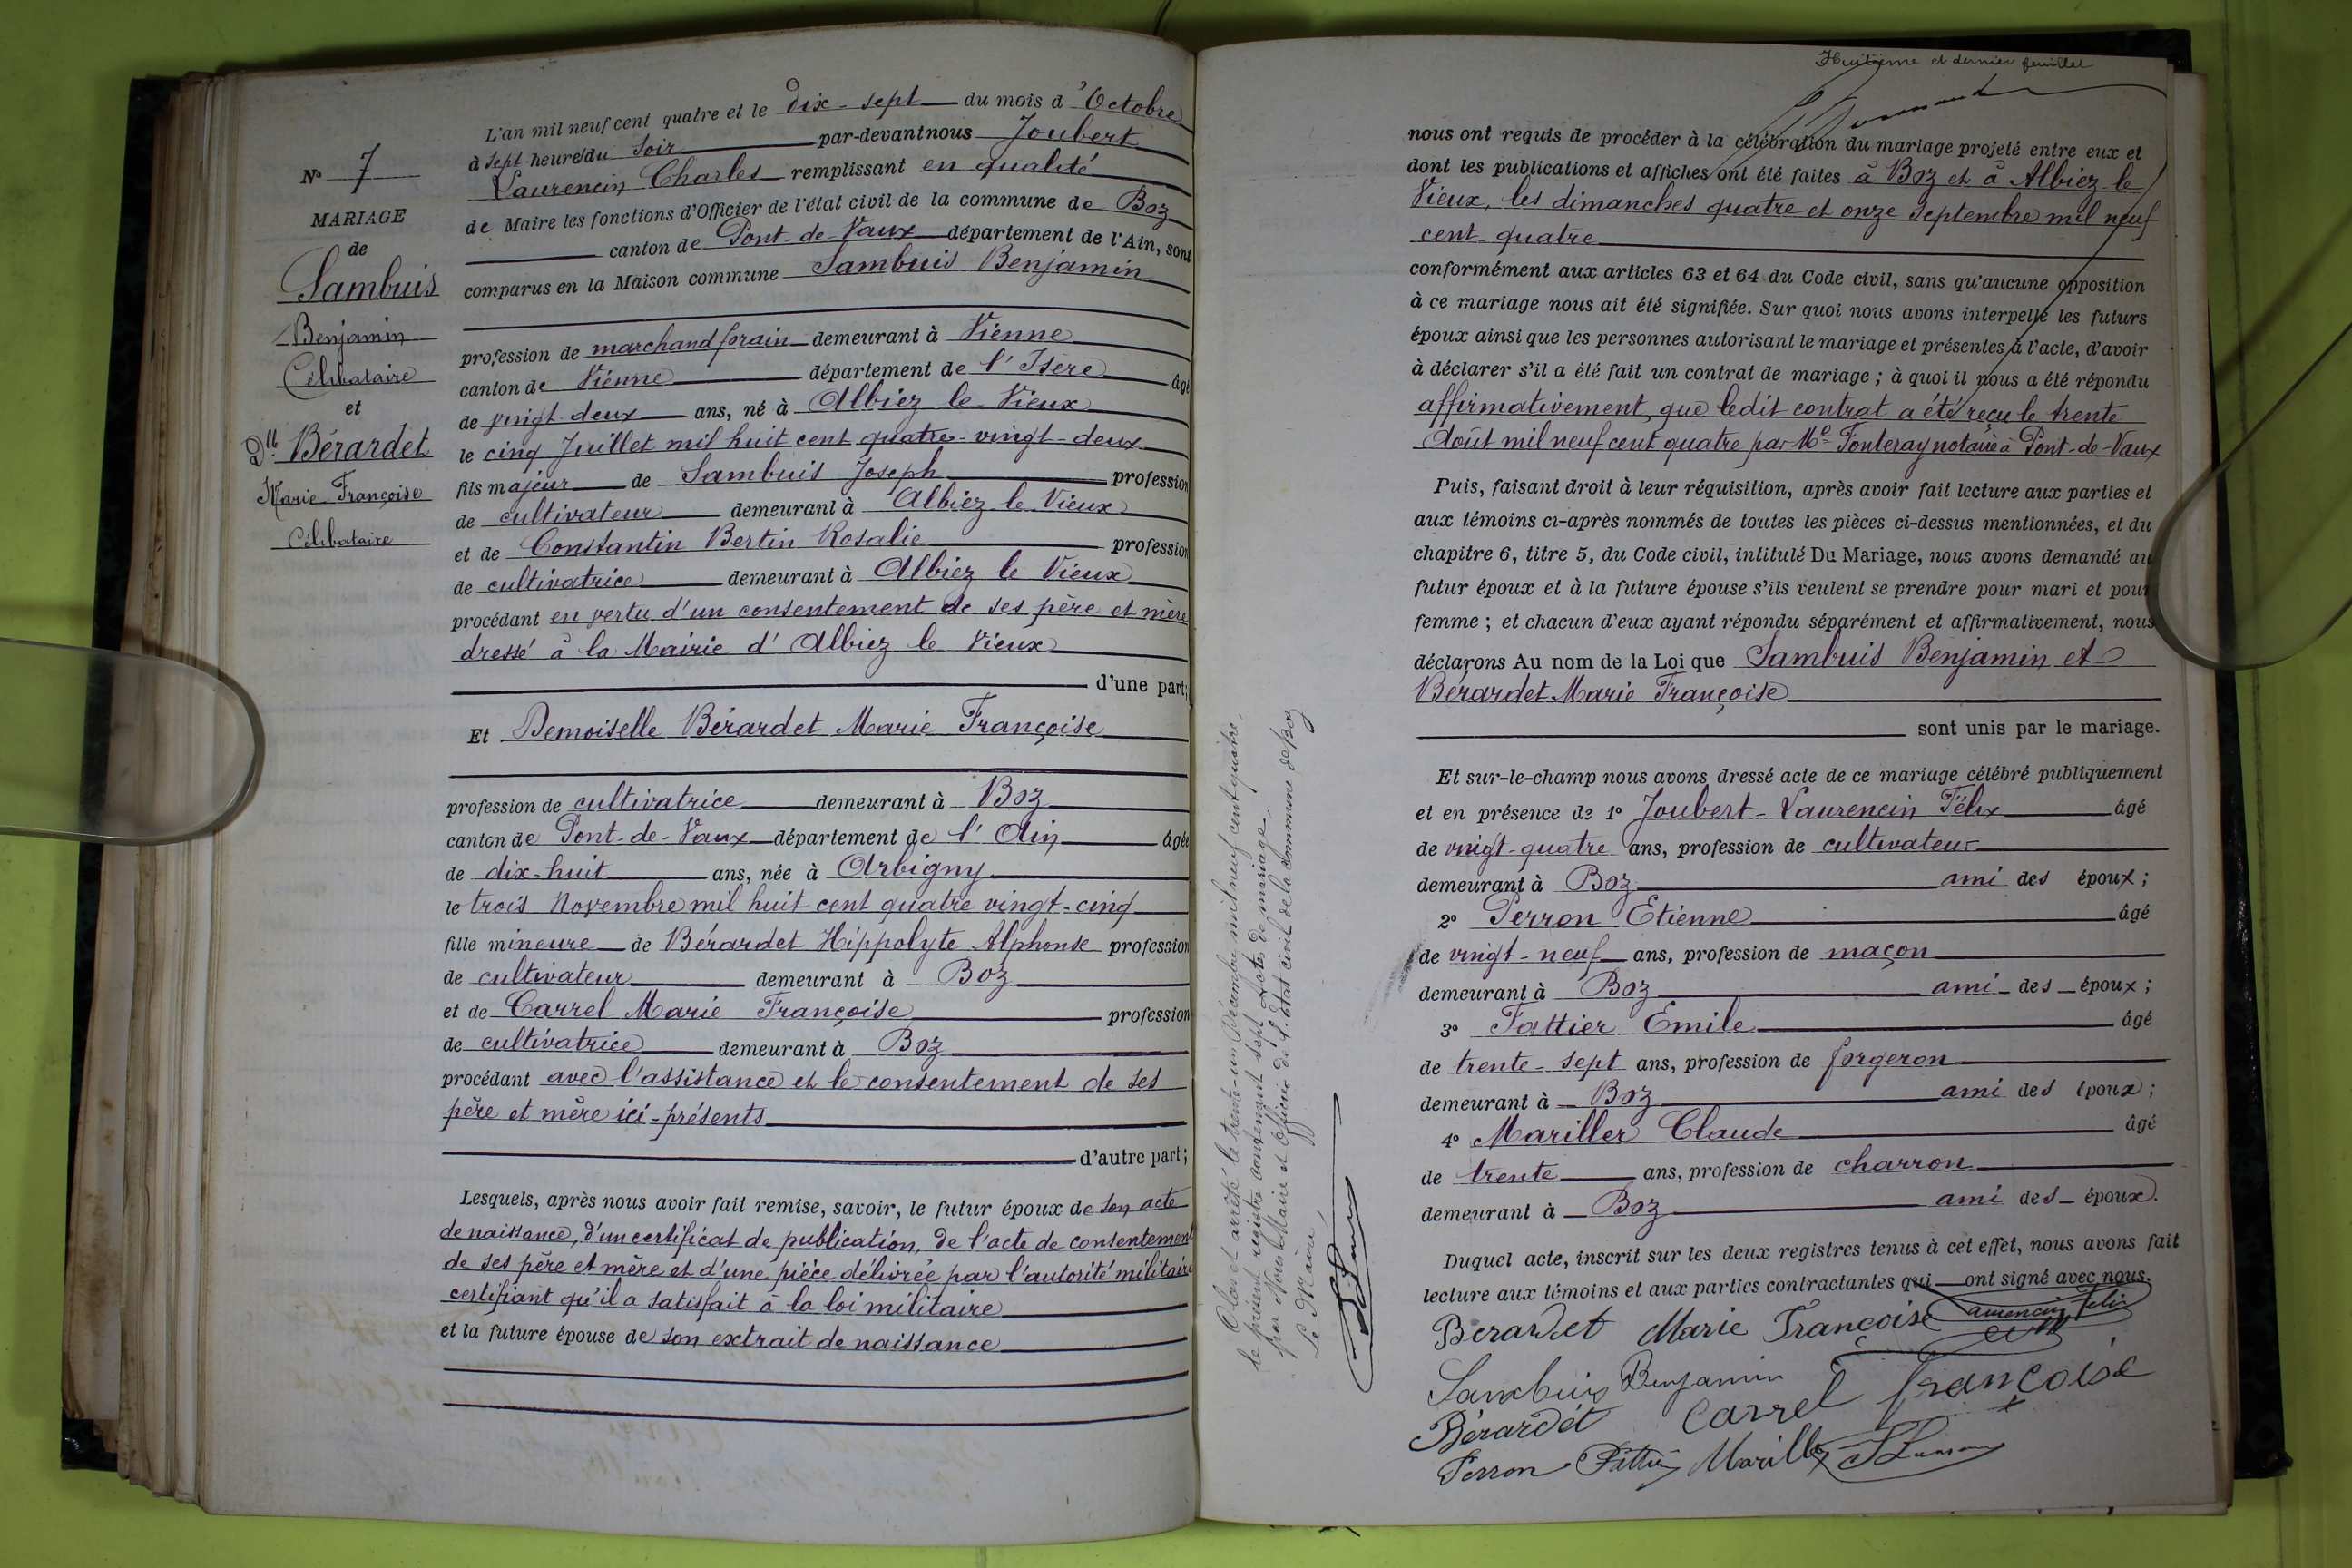 N° 7
MARIAGE
de
Sambuis
Benjamin
Célibataire
et
Dlle Bérardet
Marie Françoise
Célibataire
L'an mil neuf cent quatre et le dix-sept du mois d'Octobre
à sept heures du soir par-devant nous Joubert
Laurencin Charles remplissant en qualité
de Maire les fonctions d'Officier de l'état civil de la commune de Boz
canton de Pont-de-Vaux département de l'Ain, sont
comparus en la Maison commune Sambuis Benjamin
profession de marchand forain demeurant à Vienne
canton de Vienne département de l'Isère âgé
de vingt-deux ans, né à Albiez le Vieux
le cinq Juillet mil huit cent quatre-vingt-deux
fils majeur de Sambuis Joseph profession
de cultivateur demeurant à Albiez le Vieux
et de Constantin Bertin Rosalie profession
de cultivatrice demeurant à Albiez le Vieux
procédant en vertu d'un consentement de ses père et mère
dressé à la Mairie d'Albiez le Vieux
d'une part;
Et Demoiselle Bérardet Marie Françoise
profession de cultivatrice demeurant à Boz
canton de Pont-de-Vaux département de l'Ain âgée
de dix-huit ans, née à Arbigny
le trois Novembre mil huit cent quatre vingt-cinq
fille mineure de Bérardet Hippolyte Alphonse profession
de cultivateur demeurant à Boz
et de Carrel Marie Françoise profession
de cultivatrice demeurant à Boz
procédant avec l'assistance et le consentement de ses
père et mère ici-présents
d'autre part;
Lesquels, après nous avoir fait remise, savoir, le futur époux de son acte
de naissance, d'un certificat de publication, de l'acte de consentement
de ses père et mère et d'une pièce délivrée par l'autorité militaire
certifiant qu'il a satisfait à la loi militaire
et la future épouse de son extrait de naissance
Clos et arrêté le trente-un Décembre mil neuf cent quatre,
le présent registre contenant sept actes de mariage,
par Nous Maire et Officier de l'état civil de la commune de Boz
Le Maire,
Huitième et dernier feuillet
nous ont requis de procéder à la célébration du mariage projeté entre eux et
dont les publications et affiches ont été faites à Boz et à Albiez le
Vieux, les dimanches quatre et onze Septembre mil neuf
cent quatre
conformément aux articles 63 et 64 du Code civil, sans qu'aucune opposition
à ce mariage nous ait été signifiée. Sur quoi nous avons interpellé les futurs
époux ainsi que les personnes autorisant le mariage et présentes à l'acte, d'avoir
à déclarer s'il a été fait un contrat de mariage ; à quoi il nous a été répondu
affirmativement, que ledit contrat a été reçu le trente
Août mil neuf cent quatre par Me Fonteray notaire à Pont-de-Vaux
Puis, faisant droit à leur réquisition, après avoir fait lecture aux parties et
aux témoins ci-après nommés de toutes les pièces ci-dessus mentionnées, et du
chapitre 6, titre 5, du Code civil, intitulé Du Mariage, nous avons demandé au
futur époux et à la future épouse s'ils veulent se prendre pour mari et pour
femme ; et chacun d'eux ayant répondu séparément et affirmativement, nous
déclarons Au nom de la Loi que Sambuis Benjamin et
Bérardet Marie Françoise
sont unis par le mariage.
Et sur-le-champ nous avons dressé acte de ce mariage célébré publiquement
et en présence de 1° Joubert-Laurencin Félix âgé
de vingt-quatre ans, profession de cultivateur
demeurant à Boz ami des époux ;
2° Perron Etienne âgé
de vingt-neuf ans, profession de maçon
demeurant à Boz ami des époux ;
3° Fattier Emile âgé
de trente-sept ans, profession de forgeron
demeurant à Boz ami des époux ;
4° Mariller Claude âgé
de trente ans, profession de charron
demeurant à Boz ami des époux.
Duquel acte, inscrit sur les deux registres tenus à cet effet, nous avons fait
lecture aux témoins et aux parties contractantes qui ont signé avec nous.
Bérardet Marie Françoise Laurencin Félix
Sambuis Benjamin
Bérardet Carrel françoise
Perron Fattier Mariller